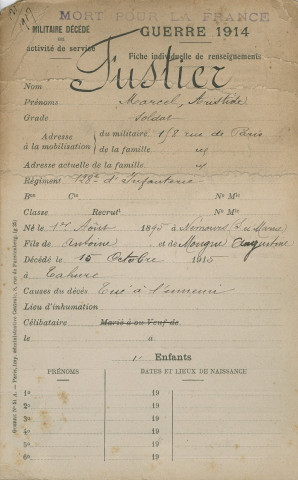 MORT POUR LA FRANCE
MILITAIRE DÉCÉDÉ
en
activité de service
GUERRE 1914
Fiche individuelle de renseignements
Nom Fustier
Prénoms Marcel, Aristide
Grade Soldat
Adresse à la mobilisation du militaire 158 rue de Paris
de la famille
Adresse actuelle de la famille
Régiment 128e d'Infanterie
Bon Cie No Mle
Classe Recrut No Mle
Né le 1er Août 1895 à Nemours (S. et Marne)
Fils de Antoine et de Mougne Augustine
Décédé le 15 Octobre 1915
à Tahure
Causes du décès Tué à l'ennemi
Lieu d'inhumation
Célibataire Marié à ou Veuf de
le à
Enfants
PRÉNOMS DATES ET LIEUX DE NAISSANCE
1o 19
2o 19
3o 19
4o 19
5o 19
6o 19